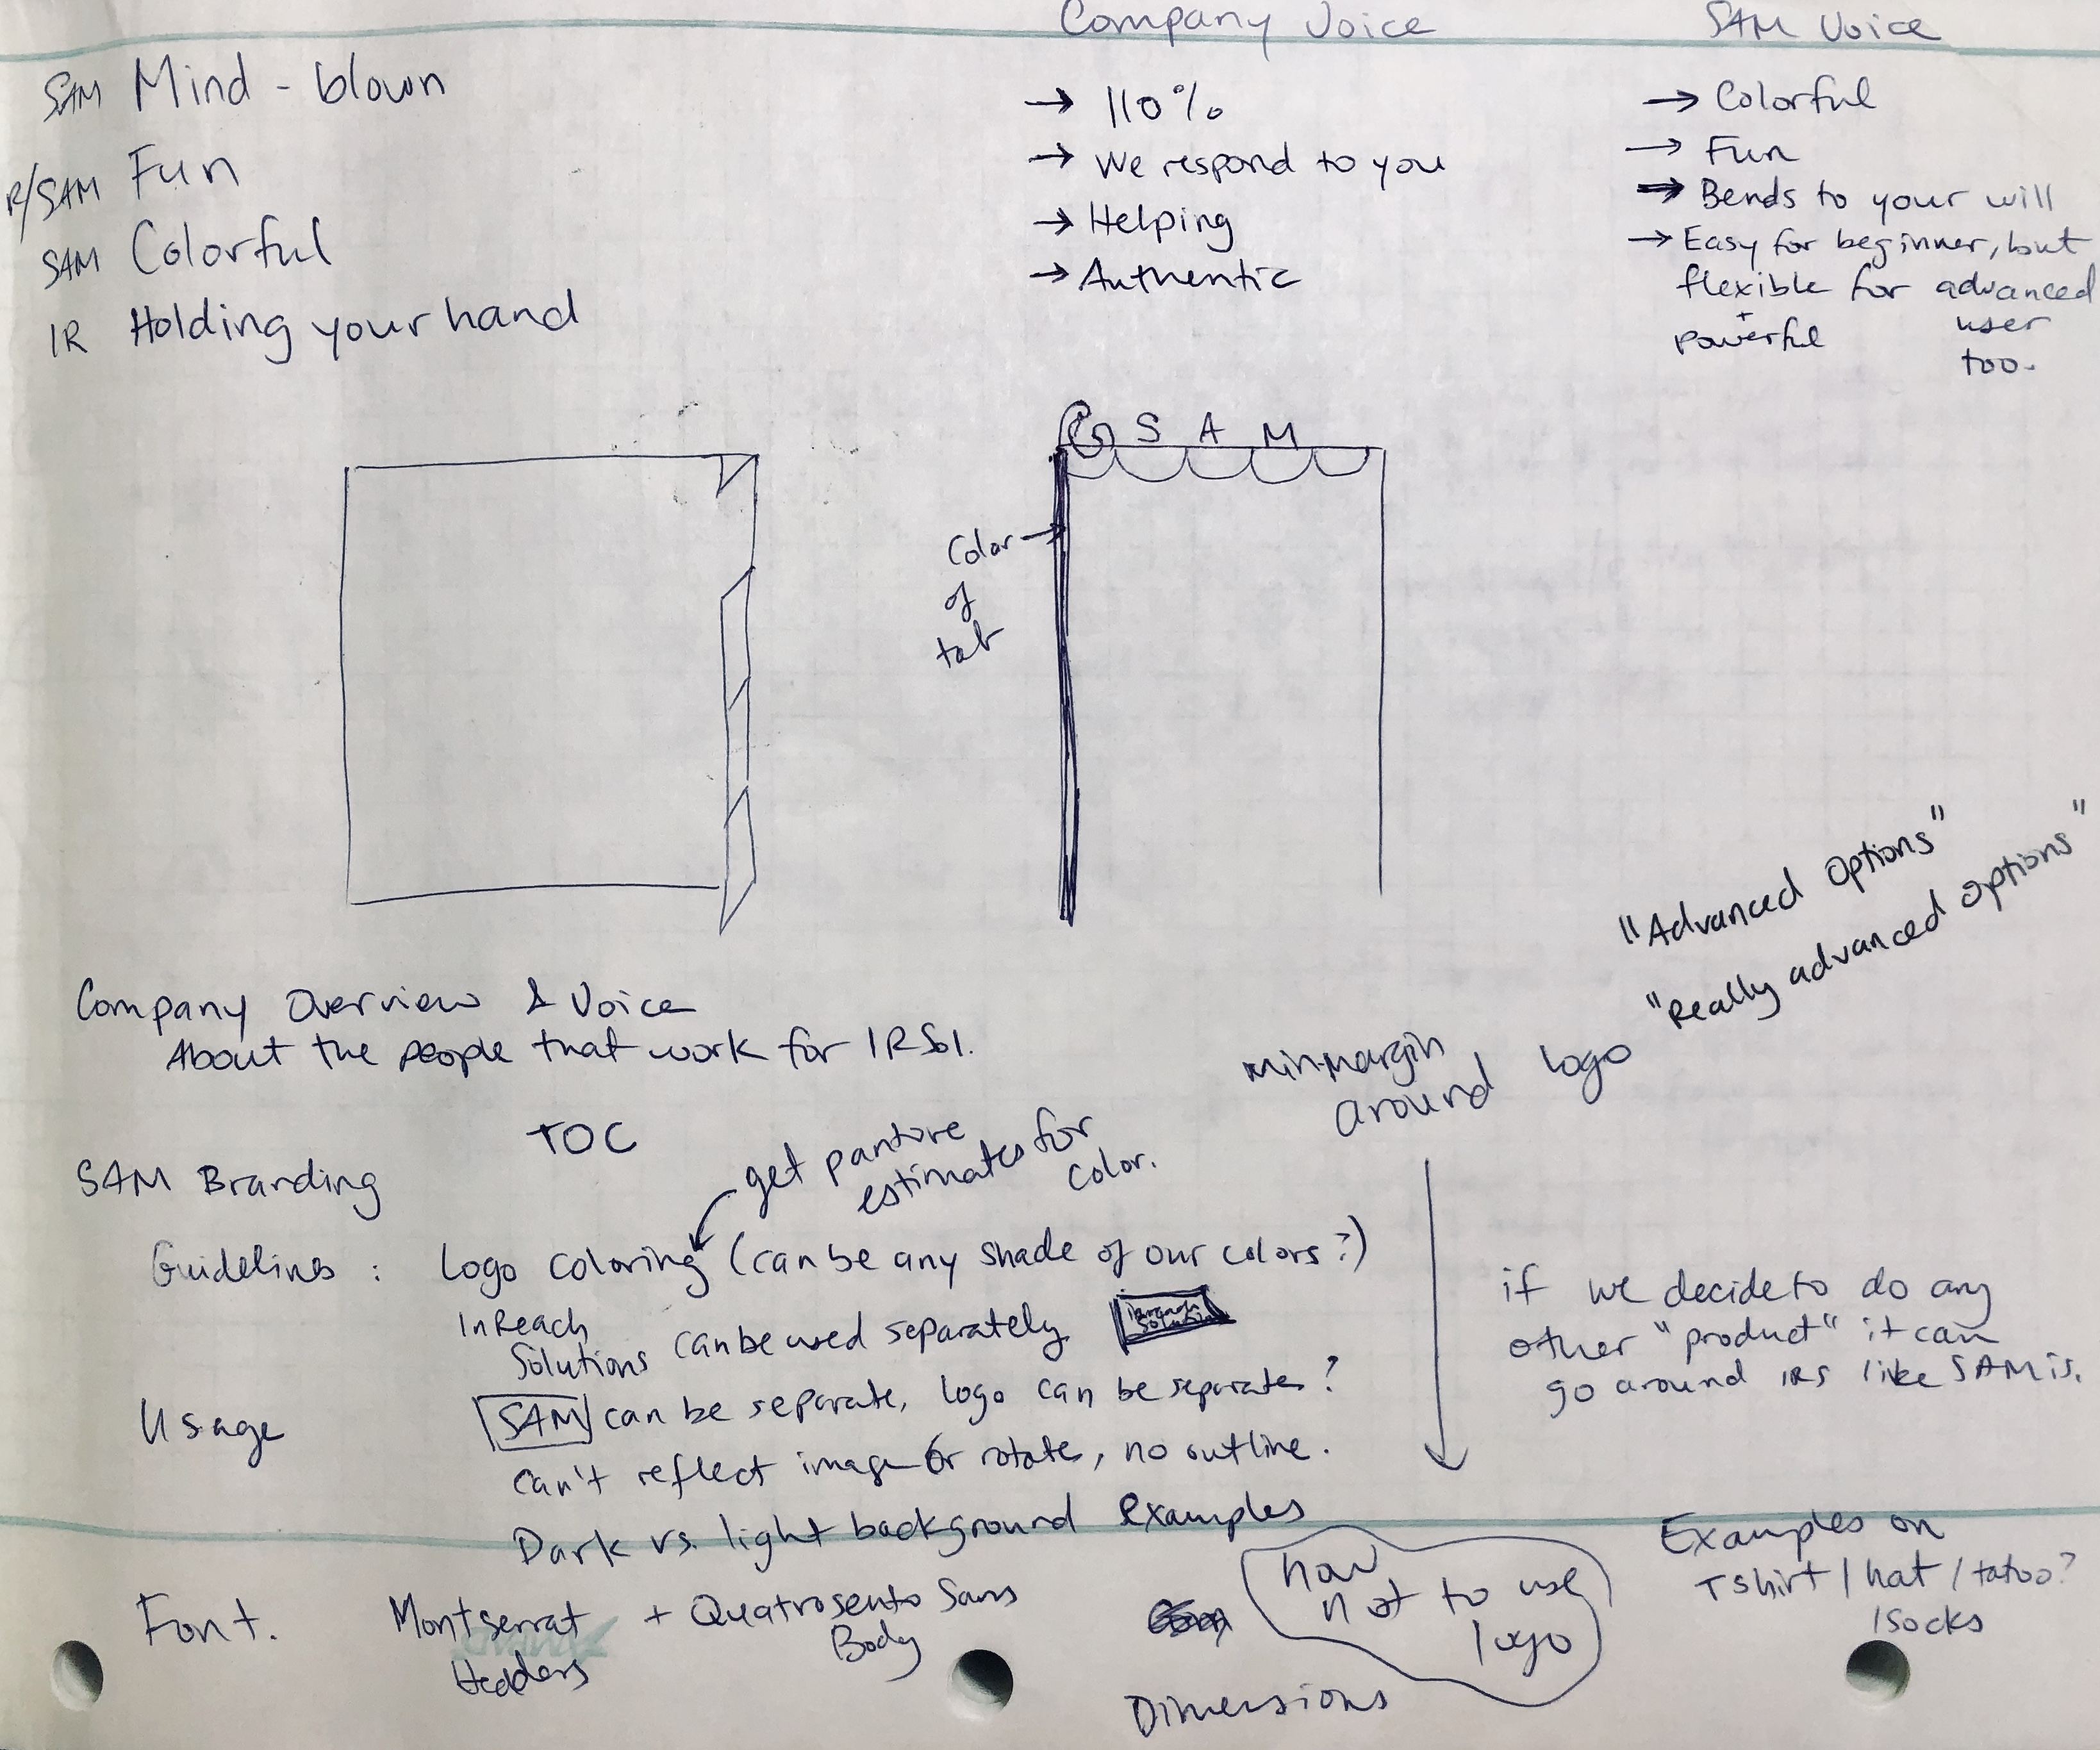 Company Voice
SAM Voice
SAM Mind - blown
R/SAM Fun
SAM Colorful
IR Holding your hand
→ 110%
→ We respond to you
→ Helping
→ Authentic
→ Colorful
→ Fun
→ Bends to your will
→ Easy for beginner, but
flexible for advanced
+
powerful
user
too.
S A M
Color →
of
tab
"Advanced Options"
"Really advanced options"
Company Overview & Voice
About the people that work for IRSol.
min margin
around logo
TOC
get pantore
estimates for
color.
SAM Branding
Guidelines : Logo coloring (can be any shade of our colors?)
InReach
Solutions can be used separately
Usage
SAM can be separate, logo can be separate?
can't reflect image or rotate, no outline.
Dark vs. light background examples
if we decide to do any
other "product" it can
go around IRS like SAM is.
Font. Montserrat + Quatrosento Sans
Headers
Body
how
not to use
logo
Dimensions
Examples on
Tshirt / hat / tatoo?
/ socks